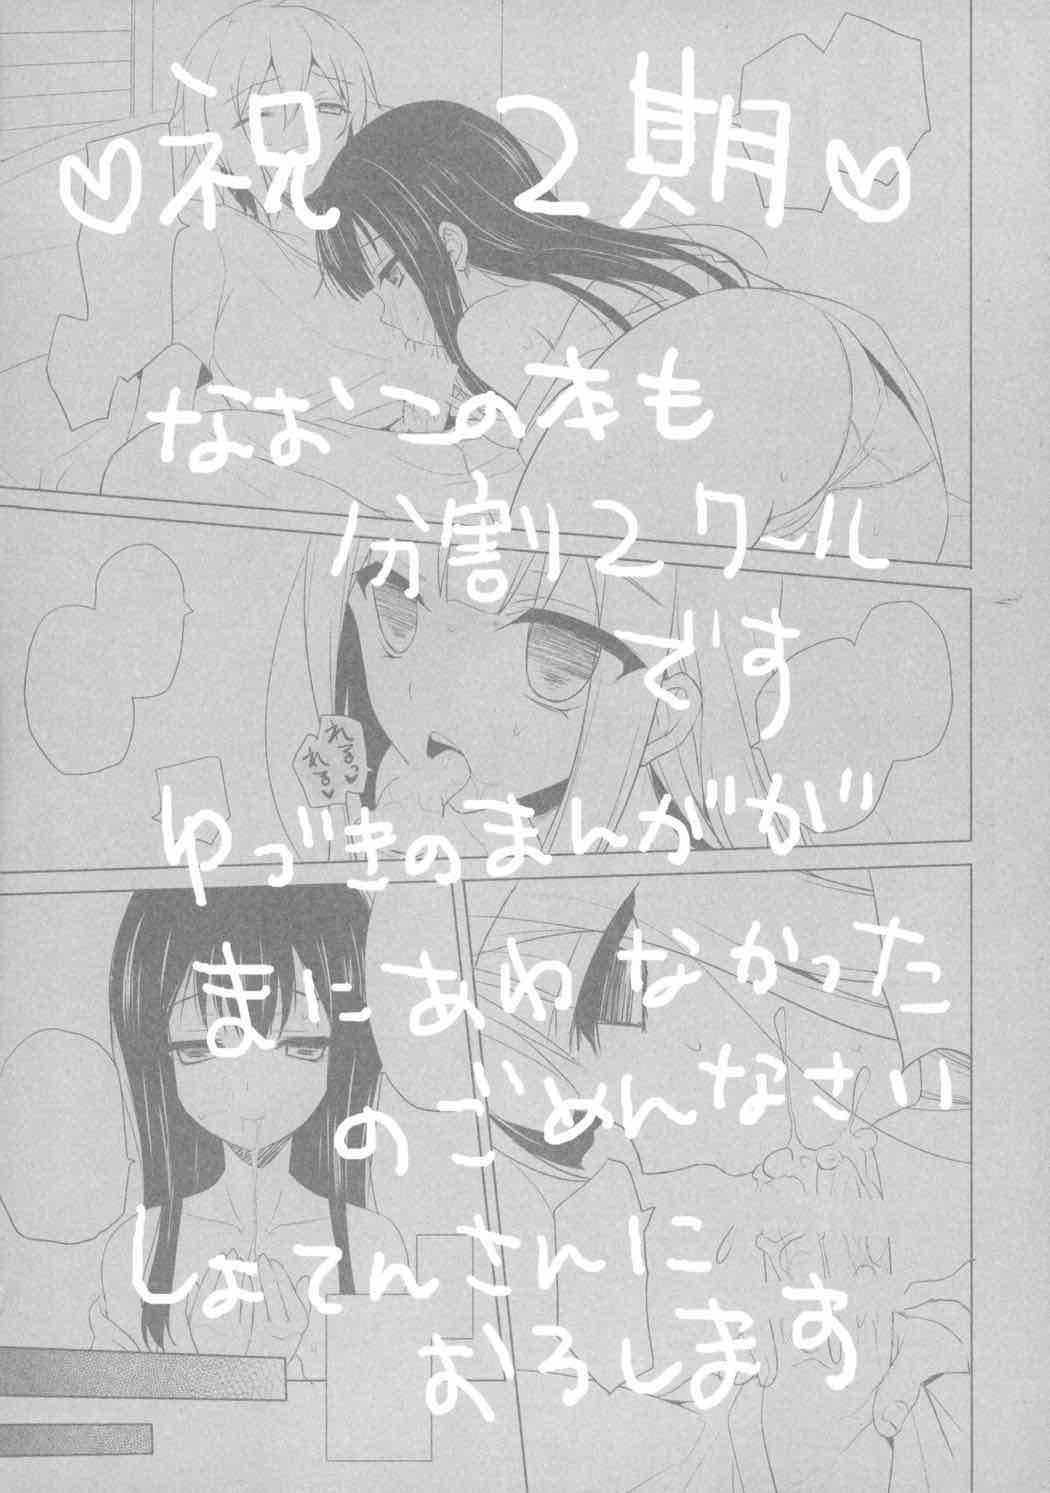 ♡祝 2期♡
なおこの本も
分割2クール
です
れるっ♥
れる♥
ゆづきのまんがが
まにあわなかった
のごめんなさい
しょてんさんに
おろします